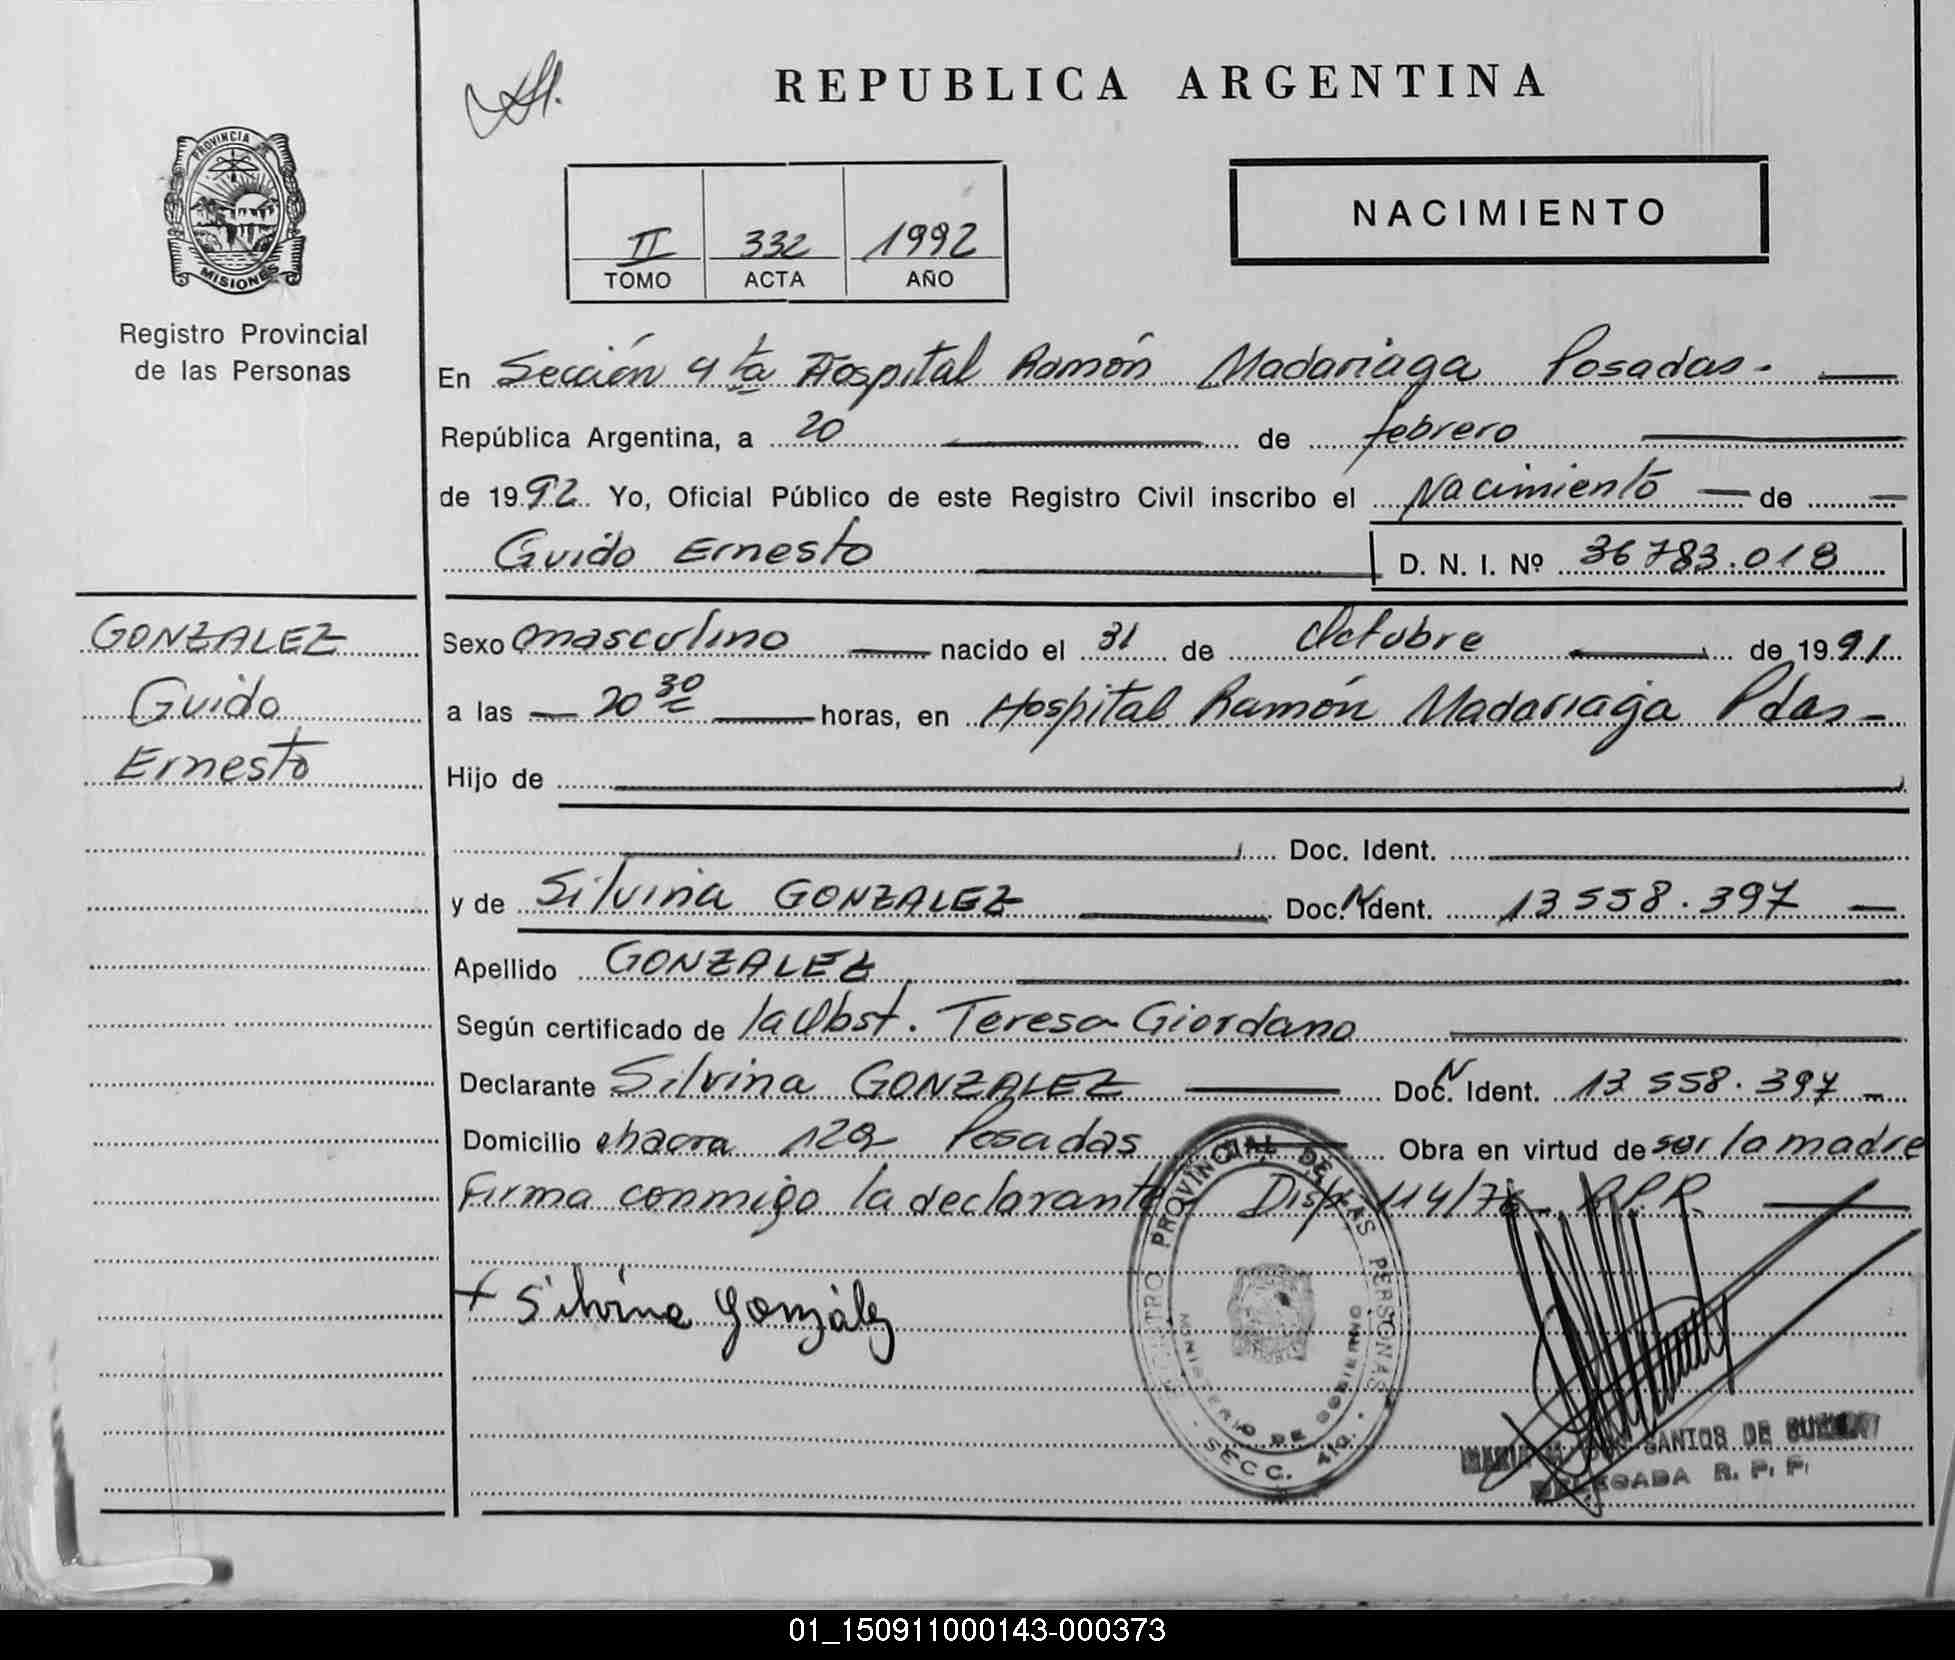 REPUBLICA ARGENTINA
PROVINCIA DE
MISIONES
Registro Provincial
de las Personas
II 332 1992
TOMO ACTA AÑO
NACIMIENTO
En Sección 4ta Hospital Ramón Madariaga Posadas.
República Argentina, a 20 de febrero
de 1992 Yo, Oficial Público de este Registro Civil inscribo el Nacimiento de
Guido Ernesto D. N. I. Nº 36783.018
GONZALEZ
Guido
Ernesto
Sexo masculino nacido el 31 de Octubre de 1991
a las 20 30 horas, en Hospital Ramón Madariaga Pdas
Hijo de
Doc. Ident.
y de Silvina GONZALEZ Doc. N Ident. 13 558.397
Apellido GONZALEZ
Según certificado de la Obst. Teresa Giordano
Declarante Silvina GONZALEZ Doc. N Ident. 13 558.397
Domicilio chacra 129 Posadas Obra en virtud de ser la madre
Firma conmigo la declarante Disp. 114/76 R.P.R
+ Silvina González
REGISTRO PROVINCIAL DE LAS PERSONAS
MINISTERIO DE GOBIERNO
SECC. 4ta.
SANTOS DE
DELEGADA R. P. P.
01_150911000143-000373